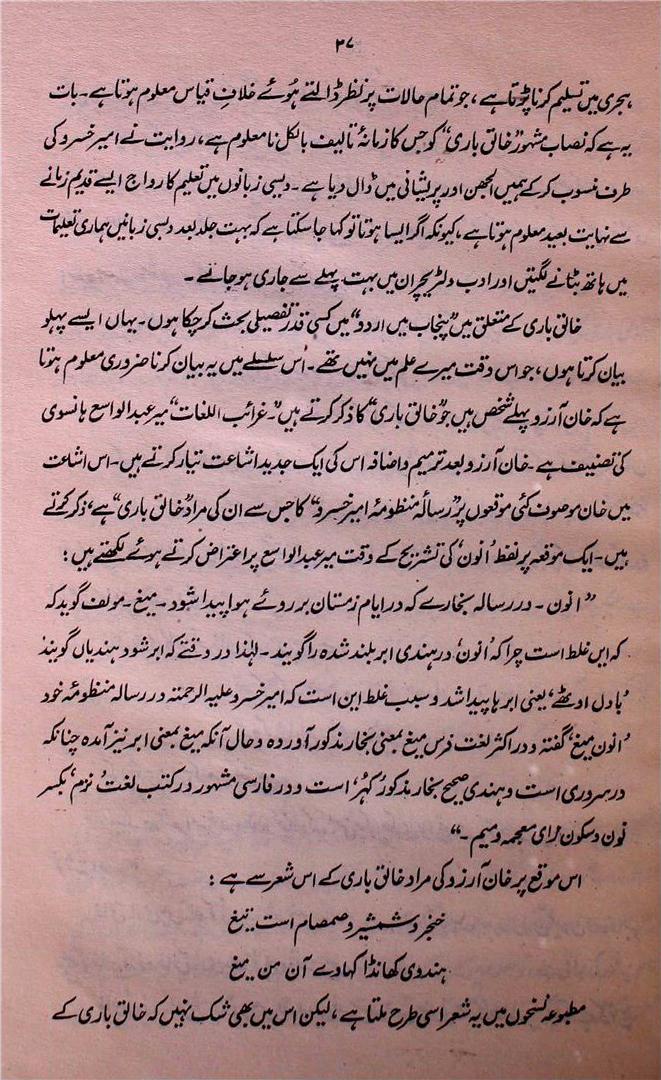 ۳۷
ہجری میں تسلیم کرنا پڑتا ہے، جو تمام حالات پر نظر ڈالتے ہُوئے خلافِ قیاس معلوم ہوتا ہے۔ بات
یہ ہے کہ نصاب مشہور "خالق باری" کو جس کا زمانۂ تالیف بالکل نامعلوم ہے، روایت نے امیر خسرو کی
طرف منسوب کر کے ہمیں الجھن اور پریشانی میں ڈال دیا ہے۔ دیسی زبانوں میں تعلیم کا رواج ایسے قدیم زمانے
سے نہایت بعید معلوم ہوتا ہے، کیونکہ اگر ایسا ہوتا تو کہا جا سکتا ہے کہ بہت جلد بعد دیسی زبانیں ہماری تعلیمات
میں ہاتھ بٹانے لگتیں اور ادب و لٹریچر ان میں بہت پہلے سے جاری ہو جاتے۔
خالق باری کے متعلق میں "پنجاب میں اردو" میں کسی قدر تفصیلی بحث کر چکا ہوں۔ یہاں ایسے پہلو
بیان کرتا ہوں، جو اس وقت میرے علم میں نہیں تھے۔ اُس سلسلے میں یہ بیان کرنا ضروری معلوم ہوتا
ہے کہ خان آرزو پہلے شخص ہیں جو "خالق باری" کا ذکر کرتے ہیں۔ "غرائب اللغات" میر عبدالواسع ہانسوی
کی تصنیف ہے۔ خان آرزو بعد ترمیم و اضافہ اس کی ایک جدید اشاعت تیار کرتے ہیں۔ اس اشاعت
میں خان موصوف کئی موقعوں پر "رسالۂ منظومۂ امیر خسرو" کا جس سے ان کی مراد "خالق باری" ہے، ذکر کرتے
ہیں۔ ایک موقعہ پر لفظ 'انون' کی تشریح کے وقت میر عبدالواسع پر اعتراض کرتے ہوئے لکھتے ہیں:
"انون۔ در رسالہ بخارے کہ در ایام زمستان بر روئے ہوا پیدا شود۔ میغ۔ مولف گوید کہ
کہ ایں غلط است چرا کہ 'انون' در ہندی ابر بلند شدہ را گویند۔ لہٰذا در وقتے کہ ابر شود ہندیاں گویند
'بادل اوٹھے' یعنی ابر ہا پیدا شد و سبب غلط این است کہ امیر خسرو علیہ الرحمتہ در رسالہ منظومۂ خود
'انون میغ' گفتہ و در اکثر لغت فرس میغ بمعنی بخار مذکور آوردہ و حال آنکہ میغ بمعنی ابر نیز آمدہ چنانکہ
در سروری است و ہندی صحیح بخار مذکور 'کہر' است و در فارسی مشہور در کتب لغت 'نزم' بکسر
نون و سکون زای معجمہ و میم۔"
اس موقع پر خان آرزو کی مراد خالق باری کے اس شعر سے ہے:
خنجر و شمشیر و صمصام است تیغ
ہندوی کھانڈا کہاوے آن من میغ
مطبوعہ نسخوں میں یہ شعر اسی طرح ملتا ہے، لیکن اس میں بھی شک نہیں کہ خالق باری کے